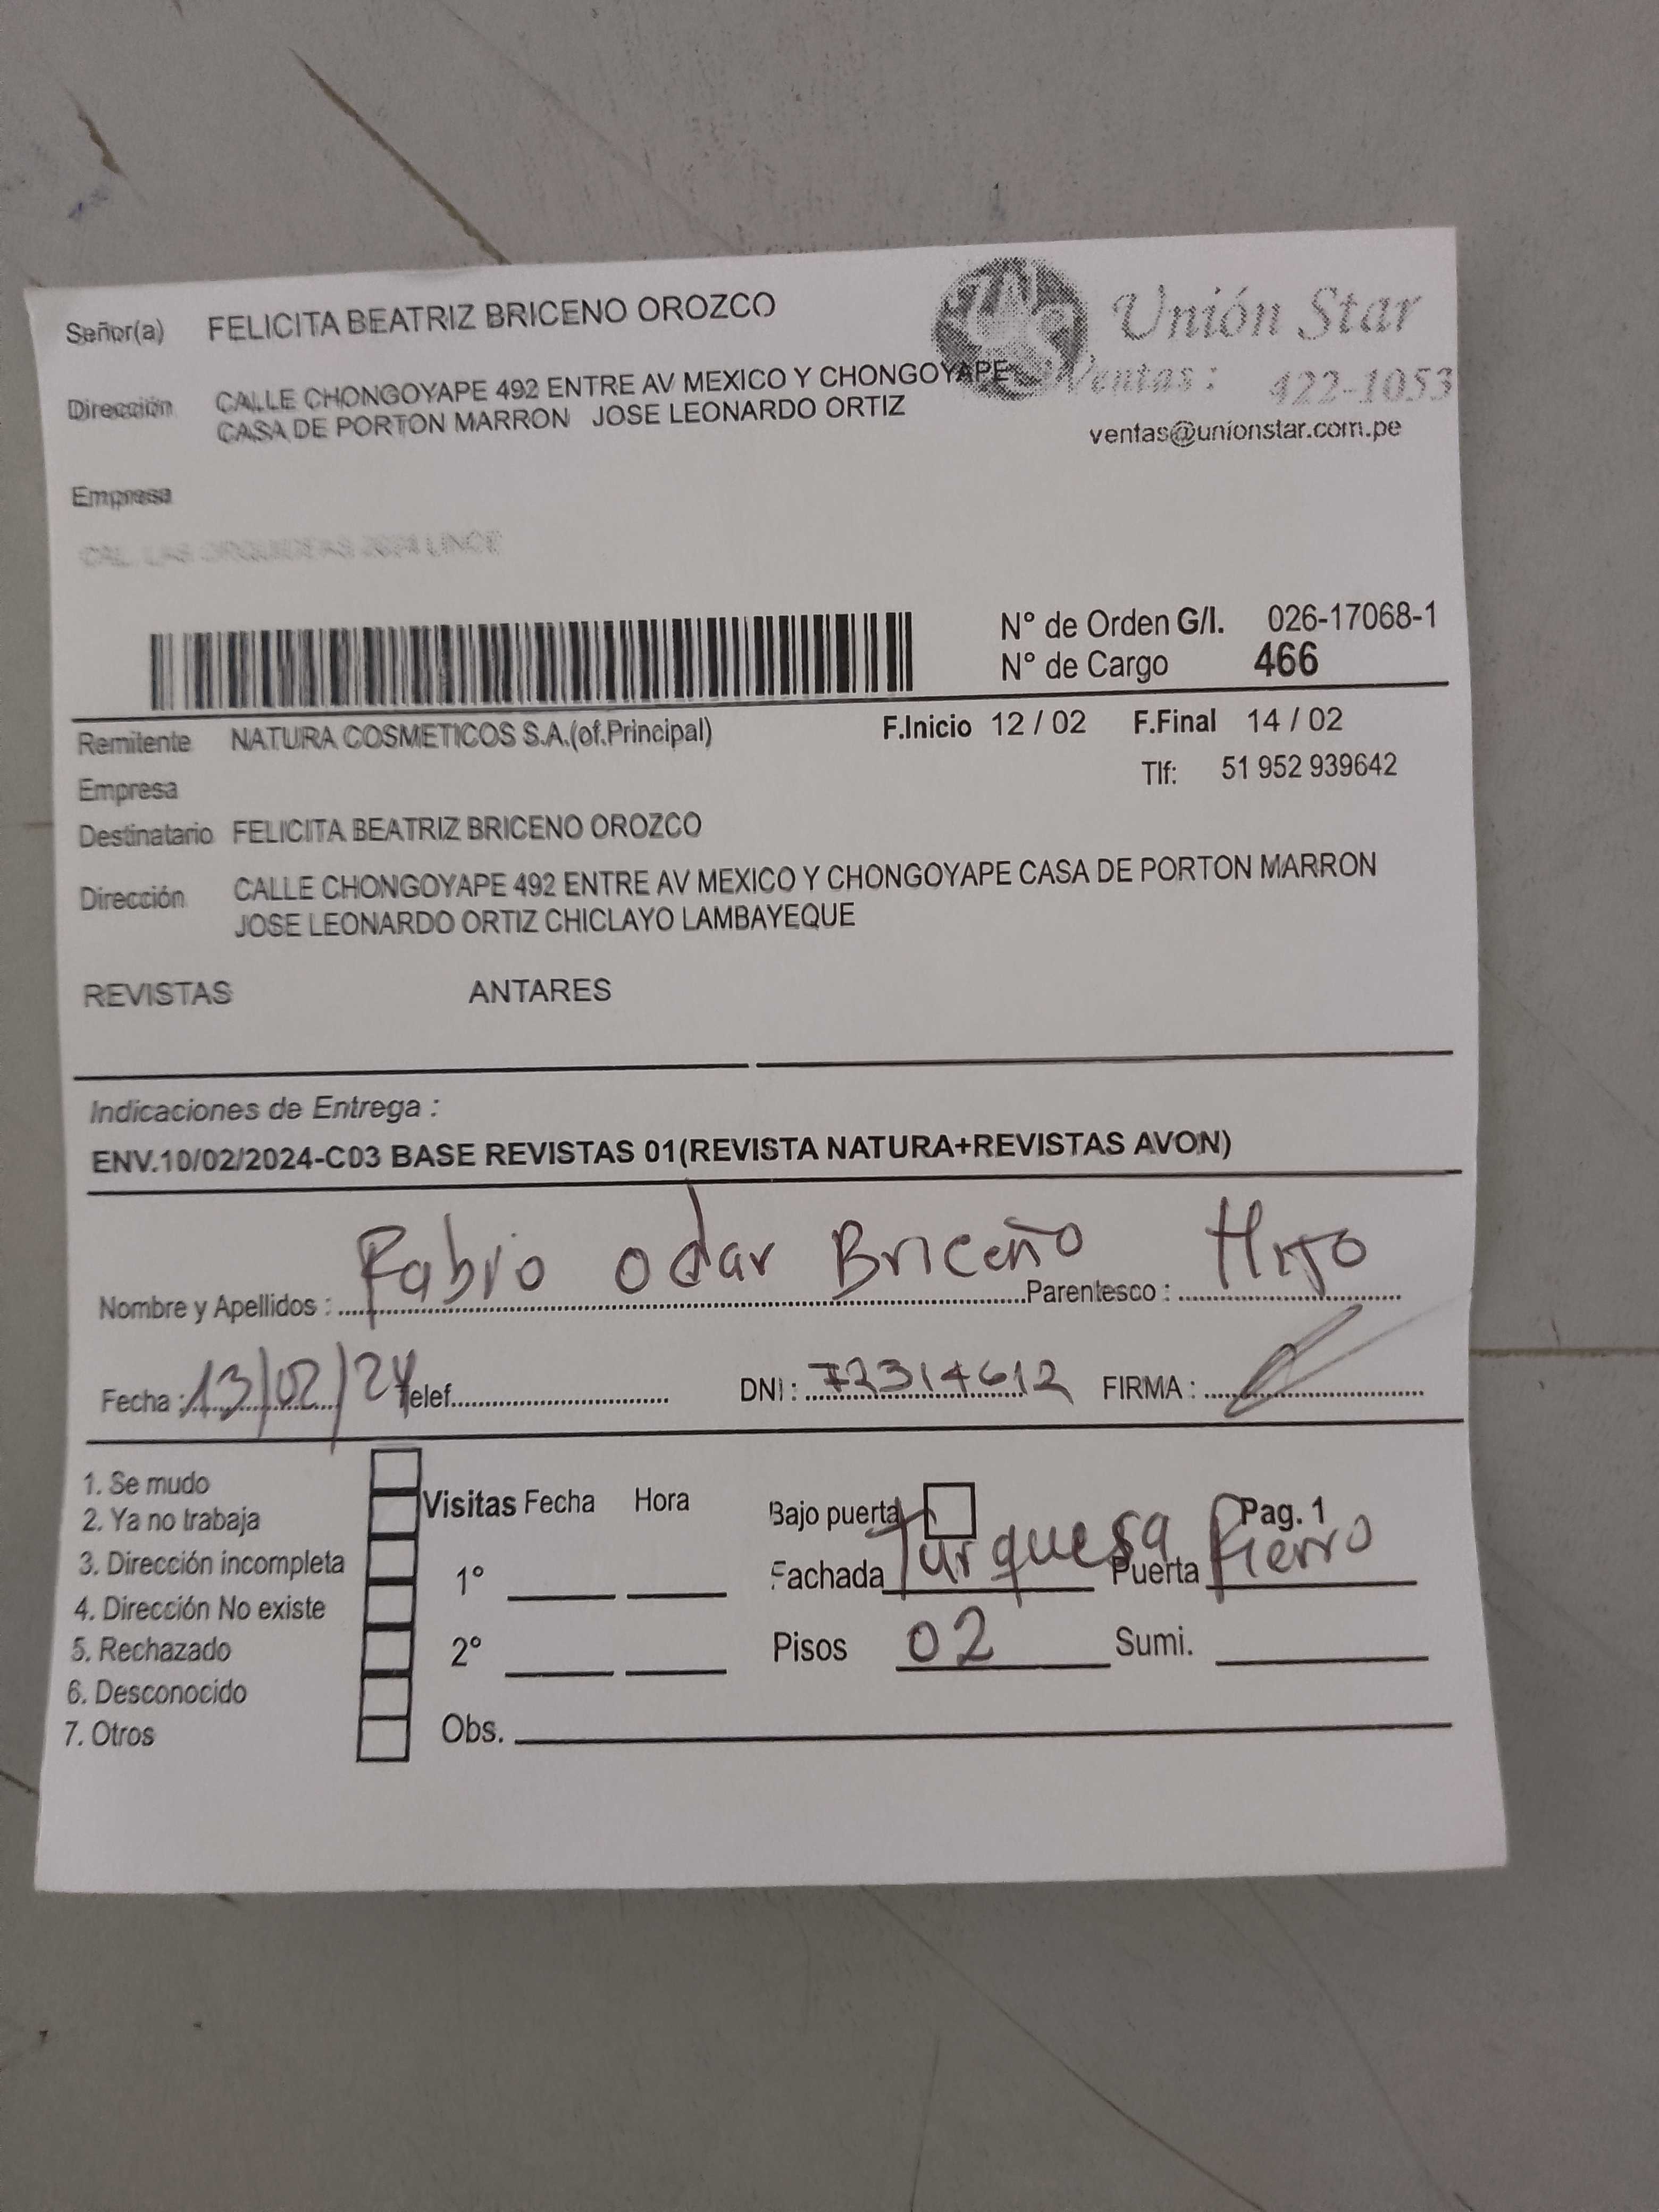 Señor(a) FELICITA BEATRIZ BRICENO OROZCO
Unión Star
Dirección CALLE CHONGOYAPE 492 ENTRE AV MEXICO Y CHONGOYAPE
CASA DE PORTON MARRON JOSE LEONARDO ORTIZ
Ventas: 422-1053
ventas@unionstar.com.pe
Empresa
CAL. LAS ORQUIDEAS LINCE
N° de Orden G/I. 026-17068-1
N° de Cargo 466
Remitente NATURA COSMETICOS S.A.(of.Principal) F.Inicio 12 / 02 F.Final 14 / 02
Empresa Tlf: 51 952 939642
Destinatario FELICITA BEATRIZ BRICENO OROZCO
Dirección CALLE CHONGOYAPE 492 ENTRE AV MEXICO Y CHONGOYAPE CASA DE PORTON MARRON
JOSE LEONARDO ORTIZ CHICLAYO LAMBAYEQUE
REVISTAS ANTARES
Indicaciones de Entrega :
ENV.10/02/2024-C03 BASE REVISTAS 01(REVISTA NATURA+REVISTAS AVON)
Nombre y Apellidos : Fabrio odar Briceño Parentesco : HIJO
Fecha : 13/02/24 Telef. DNI : 72314612 FIRMA :
1. Se mudo
2. Ya no trabaja
3. Dirección incompleta
4. Dirección No existe
5. Rechazado
6. Desconocido
7. Otros
Visitas Fecha Hora
1°
2°
Obs.
Bajo puerta Pag. 1
Fachada Turquesa Puerta Fierro
Pisos 02 Sumi.